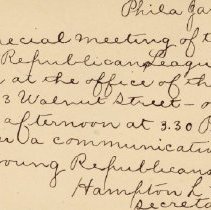 Phila Ja
special meeting of t
Republican League
at the office of th
3 Walnut Street - o
afternoon at 3.30 P
a communicati
oung Republicans
Hampton L
Secreta